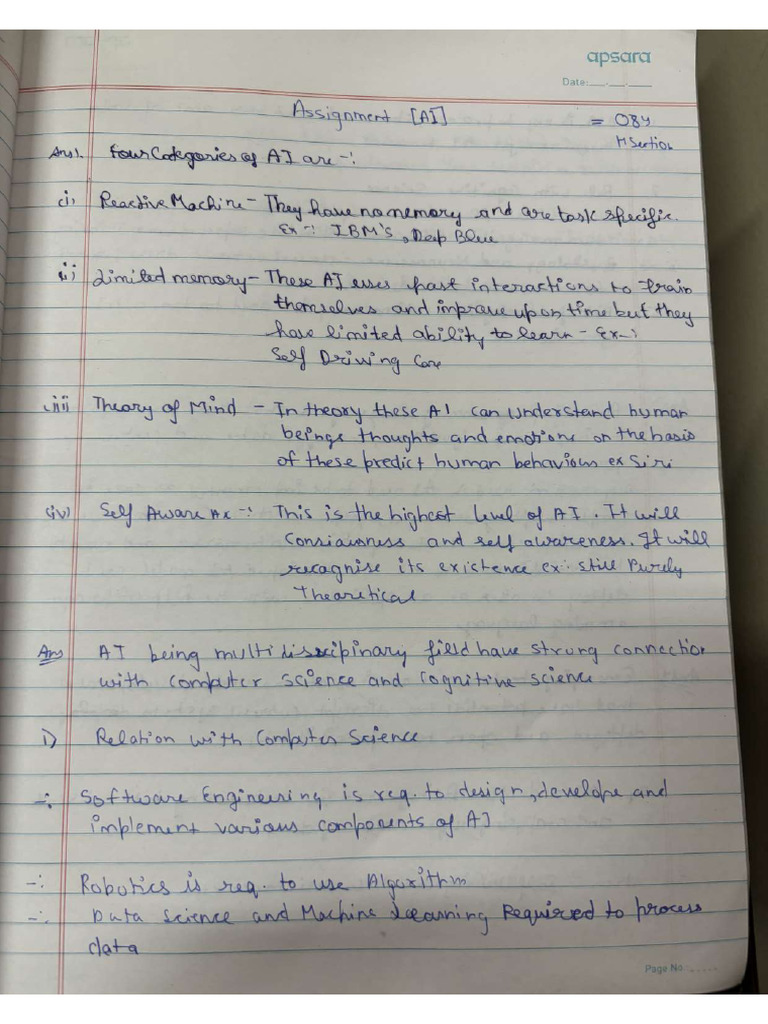 apsara
Date:__.__.__
Assignment [AI] = 084
M Section
Ans1. Four Categories of AI are -:
(i) Reactive Machine - They have no memory and are task specific.
Ex -: IBM's, Deep Blue
ii) Limited memory - These AI uses past interactions to train
themselves and improve upon time but they
have limited ability to learn - Ex-:
Self Driving Care
iii) Theory of Mind - In theory these AI can understand human
beings thoughts and emotions on the basis
of these predict human behaviour ex Siri
(iv) Self Aware AI -: This is the highest level of AI. It will
Consiousness and self awareness. It will
recognise its existence ex: still Purely
Theoretical
Ans AI being multi disscipinary field have strong connection
with computer science and Cognitive science
i) Relation with Computer Science
-: Software Engineering is req. to design, develope and
implement various components of AI
-: Robotics is req. to use Algorithm
-: Data Science and Machine learning Required to process
data
Page No.:.....